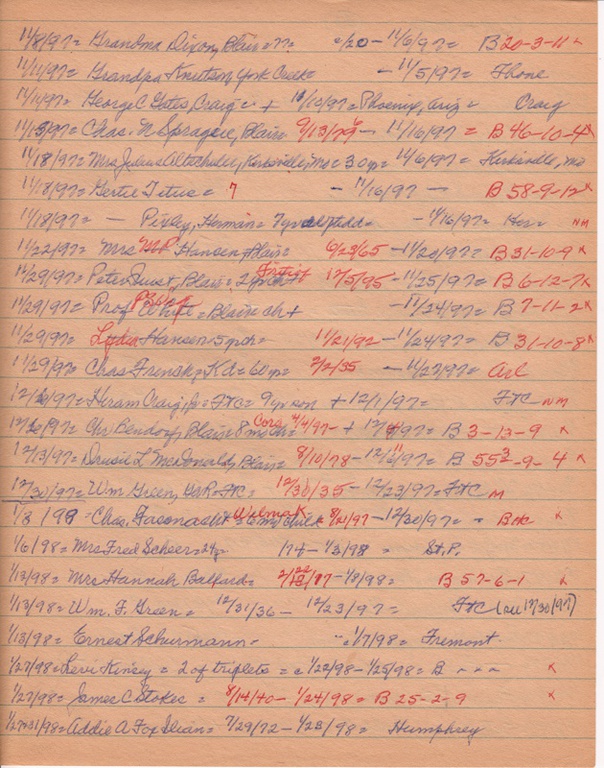 11/8/97= Grandma Dixon, Blair=?? c/20- 11/6/97= B 20-3-11 x
11/11/97= Grandpa Knutson, York Creek= - 11/5/97= Fhone
11/11/97= George C Gates, Craig= + 10/10/97= Phoenix, Ariz= Craig
11/15/97= Chas. N Sprague, Blair= 9/13/79- 11/16/97= B 46-10-4 x
11/18/97= Mrs Julius Altschuler, Kirksville, Mo= 30 yr= 11/6/97= Kirksville, Mo
11/18/97= Gertie Titus= ? - 11/16/97 - B 58-9-12 x
11/18/97= - Pixley, Herman= 7 yr old - 11/16/97= NM
11/22/97= Mrs M.P. Hansen, Blair= 6/23/65 -11/20/97= B 31-10-9 x
11/29/97= Peter Quist, Blair= 2 yr ch+ 12/5/95 -11/25/97= B 6-12-7 x
11/29/97= Prof White= Blair ch+ -11/24/97= B 7-11-2 x
11/29/97= Lydia Hansen= 5 yr ch= 11/21/92 -11/24/97= B 31-10-8 x
11/29/97= Chas Frensk, Kd= 60 yr= 2/2/35 -11/27/97= Arl
Hiram Craig, Jr= FtC= 9 yr son + 12/1/97= FtC NM
Chr Bendorf, Blair= 8 mo ch= Cora 4/4/97- + B 3-13-9 x
12/13/97= Drusie L. McDonald, Blair= 8/10/78 - B 55-9-4 x
12/30/97= Wm Green, GAR= FtC= 12/30/35 -12/23/97= FtC M
1/3/98= Chas. Wilma K child 8/21/97 -12/30/97= - B x
1/6/98= Mrs Fred Scheer= 24 yr 1/74- 1/3/98 = St.P.
1/13/98= Mrs Hannah Balfard= -1/8/98= B 57-6-1 x
1/13/98= Wm. F. Green= 12/31/36 - 12/23/97= FtC (See 12/30/97)
1/13/98= Ernest Schurmann= c1/7/98= Fremont.
1/27/98= Levi Kinsey= 2 of triplets= c 1/22/98-1/25/98= B - - - x
1/27/98= James C Stokes = 8/14/40- 1/24/98= B 25-2-9 x
1/27+31/98= Addie A Fox Ilian= 7/29/72 - 1/23/98= Humphrey